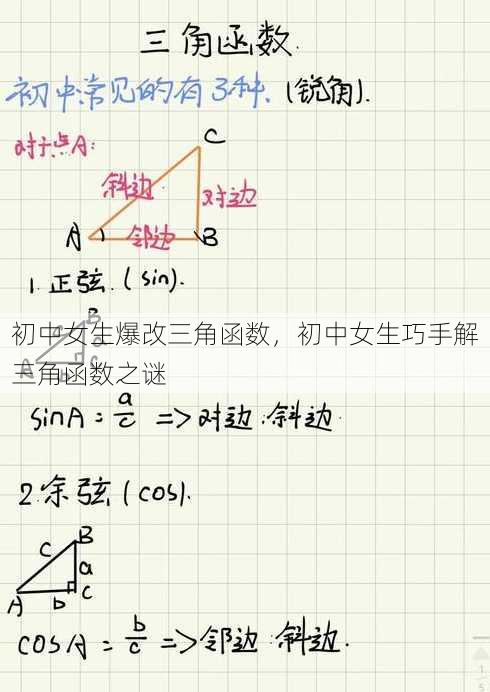 三角函数.
初中常见的有3种.(锐角).
对于点A:
C
斜边
对边
A
邻边
B
1.正弦.(sin).
初中女生爆改三角函数，初中女生巧手解
三角函数之谜
sinA = a/c => 对边:斜边
2.余弦(cos).
B
c
a
A
b
C
cosA = b/c => 邻边:斜边.
1/5